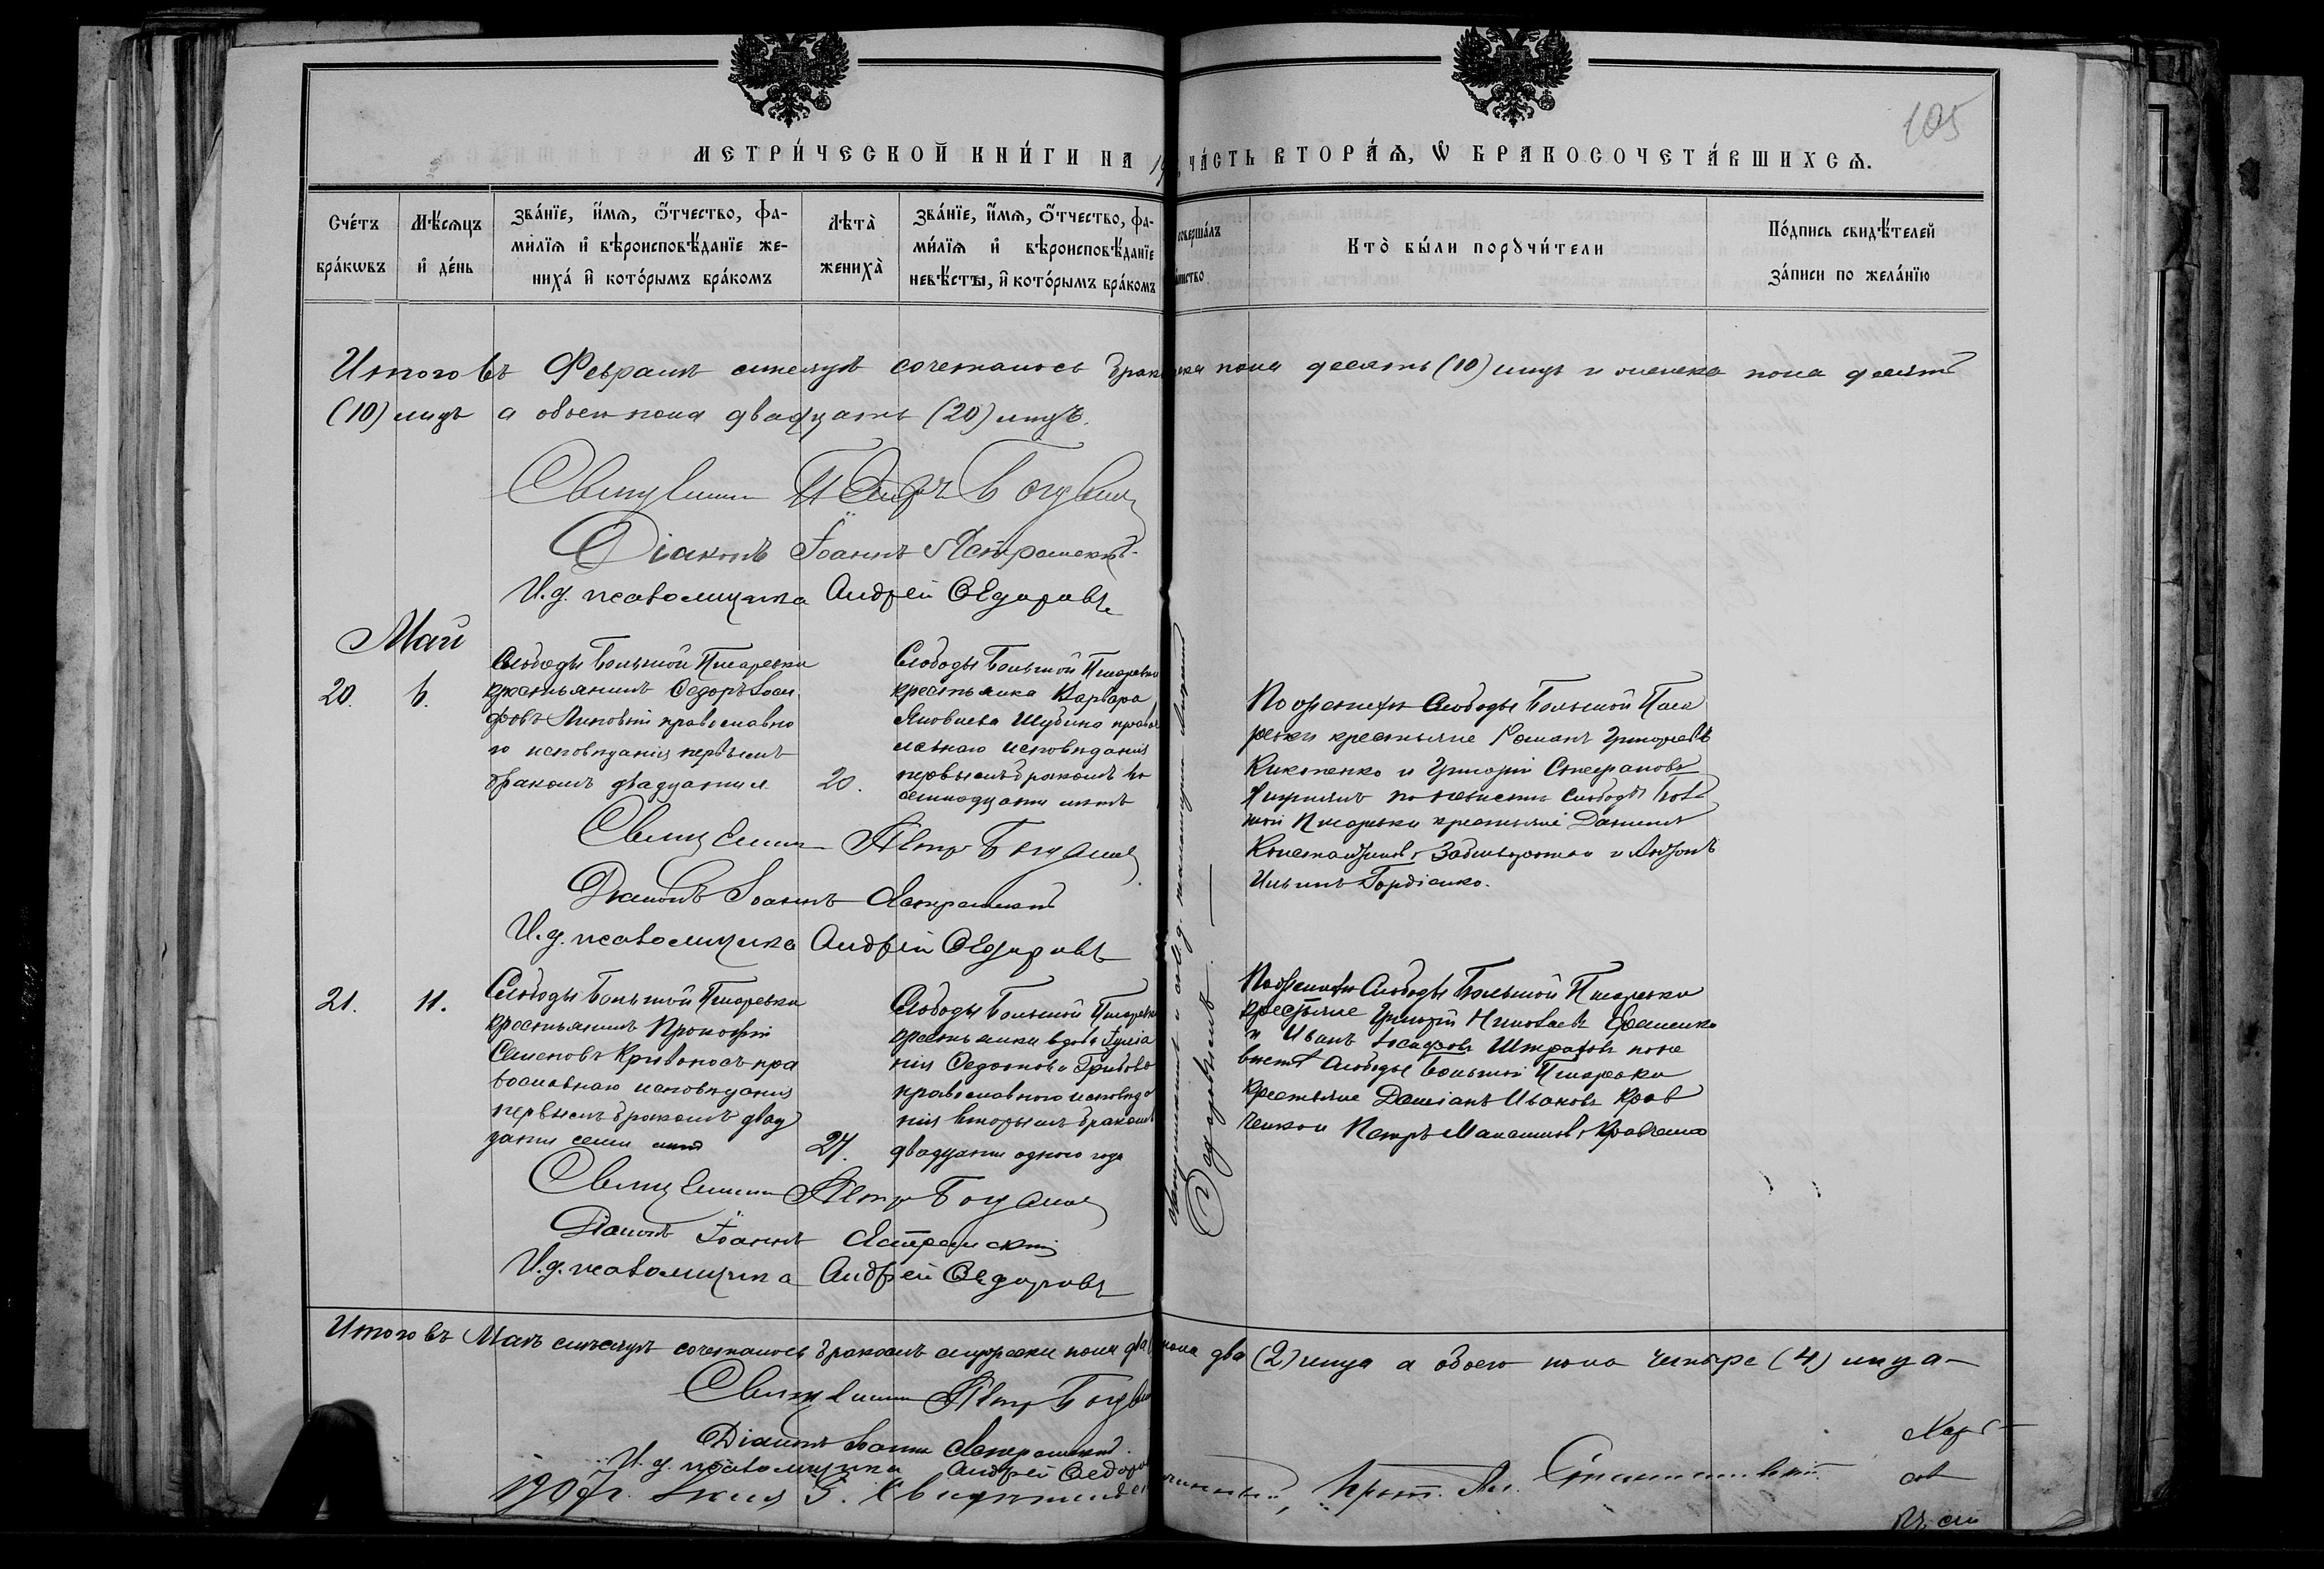 105
МЕТРИ́ЧЕСКОЙ КНИ́ГИ НА 19
ЧА́СТЬ ВТОРА́Ѧ, Ѡ БРАКОСОЧЕТА́ВШИХСѦ.
Сче́тъ бра́кѡвъ
Мѣ́сѧцъ и҆ де́нь
Зва́нїе, и҆́мѧ, ѻ҆́тчество, фа-
ми́лїѧ и҆ вѣроисповѣ́данїе же-
ниха́ и҆ кото́рымъ бра́комъ
Лѣта̀ жениха̀
Зва́нїе, и҆́мѧ, ѻ҆́тчество, фа-
ми́лїѧ и҆ вѣроисповѣ́данїе
невѣ́сты, и҆ кото́рымъ бра́комъ
соверша́лъ
Кто̀ бы́ли порꙋчи́тели
По́дпись свидѣ́телей
за́писи по жела́нїю
Итого въ Февралѣ мѣсяцѣ сочеталось брак пола десять (10) лицъ и женска пола десять
(10) лицъ а обоего пола двадцать (20) лицъ.
Священникъ Петръ
Діаконъ Іоаннъ Ястремскій
И. д. псаломщика Андрей Ѳедоровъ
Май
20.
6.
Слободы Большой Писаревки
крестьянинъ Ѳедоръ Іоси
фовъ Липовый православна
го исповѣданія первымъ
бракомъ двадцати л.
20.
Слободы Большой Писаревки
крестьянка Варвара
Яковлева Шубина правос
лавнаго исповѣданія
первымъ бракомъ во
семнадцати лѣтъ
По женихѣ Слободы Большой Писа
ревки крестьяне Романъ Григорьевъ
Кикотенко и Григорій Стефановъ
по невѣстѣ Слободы Боль
шой Писаревки крестьяне Даніилъ
Константиновъ и
Ильинъ Гордіенко.
Священникъ Петръ
Діаконъ Іоаннъ Ястремскій
И. д. псаломщика Андрей Ѳедоровъ
21.
11.
Слободы Большой Писаревки
крестьянинъ Прокофій
Семеновъ Кривоносъ пра
вославнаго исповѣданія
первымъ бракомъ двад
цати семи лѣтъ
27.
Слободы Большой Писаревки
крестьянка вдова Іуліа
нія Грибова
православнаго исповѣда
нія вторымъ бракомъ
двадцати одного года
По женихѣ Слободы Большой Писаревки
крестьяне Григорій Николаевъ
и Иванъ Іосифовъ Штраховъ по не
вѣстѣ Слободы Большой Писаревки
крестьяне Даміанъ Ивановъ Крав
ченко и Петръ Кравченко
Священникъ Петръ
Діаконъ Іоаннъ Ястремскій
И. д. псаломщика Андрей Ѳедоровъ
Ѳедоровымъ.
Итого въ Маѣ мѣсяцѣ сочеталось бракомъ мужеска пола два пола два (2) лица а обоего пола четыре (4) лица
Священникъ Петръ
Діаконъ Іоаннъ Ястремскій
И. д. псаломщика Андрей Ѳедоровъ